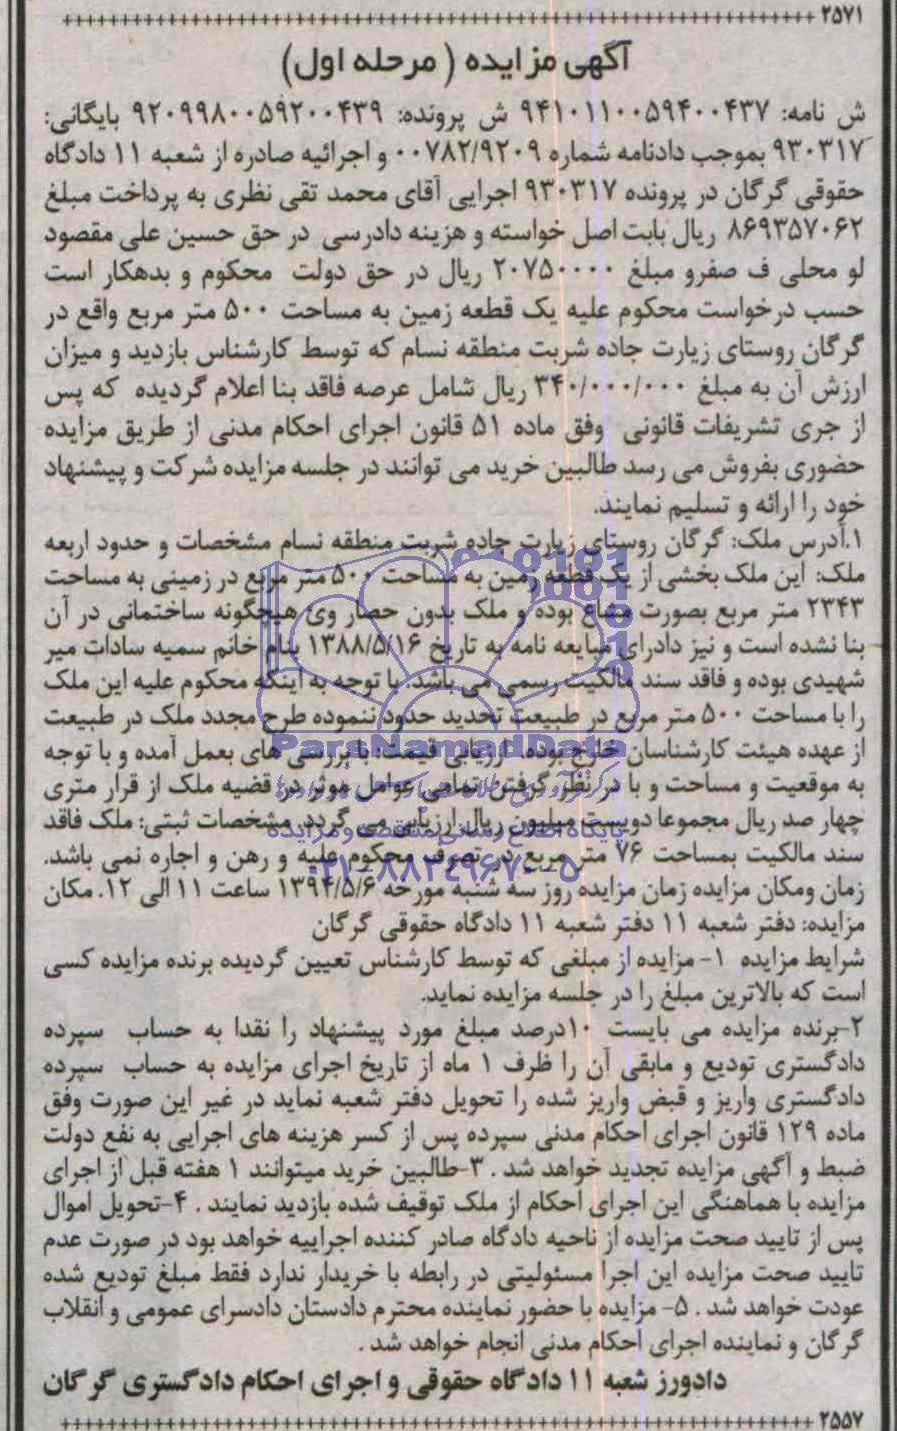 ۲۵۷۱
آگهی مزایده ( مرحله اول)
ش نامه: ۹۴۱۰۱۱۰۰۵۹۴۰۰۴۳۷ ش پرونده: ۹۲۰۹۹۸۰۰۵۹۲۰۰۴۳۹ بایگانی:
۹۳۰۳۱۷ بموجب دادنامه شماره ۰۰۷۸۲/۹۲۰۹ و اجرائیه صادره از شعبه ۱۱ دادگاه
حقوقی گرگان در پرونده ۹۳۰۳۱۷ اجرایی آقای محمد تقی نظری به پرداخت مبلغ
۸۶۹۳۵۷۰۶۲ ریال بابت اصل خواسته و هزینه دادرسی در حق حسین علی مقصود
لو محلی ف صفرو مبلغ ۲۰۷۵۰۰۰۰ ریال در حق دولت محکوم و بدهکار است
حسب درخواست محکوم علیه یک قطعه زمین به مساحت ۵۰۰ متر مربع واقع در
گرگان روستای زیارت جاده شربت منطقه نسام که توسط کارشناس بازدید و میزان
ارزش آن به مبلغ ۳۴۰/۰۰۰/۰۰۰ ریال شامل عرصه فاقد بنا اعلام گردیده که پس
از جری تشریفات قانونی وفق ماده ۵۱ قانون اجرای احکام مدنی از طریق مزایده
حضوری بفروش می رسد طالبین خرید می توانند در جلسه مزایده شرکت و پیشنهاد
خود را ارائه و تسلیم نمایند.
۱.آدرس ملک: گرگان روستای زیارت جاده شربت منطقه نسام مشخصات و حدود اربعه
ملک: این ملک بخشی از یک قطعه زمین به مساحت ۵۰۰ متر مربع در زمینی به مساحت
۲۳۴۳ متر مربع بصورت مشاع بوده و ملک بدون حصار وی هیچگونه ساختمانی در آن
بنا نشده است و نیز دادرای مبایعه نامه به تاریخ ۱۳۸۸/۵/۱۶ بنام خانم سمیه سادات میر
شهیدی بوده و فاقد سند مالکیت رسمی می باشد. با توجه به اینکه محکوم علیه این ملک
را با مساحت ۵۰۰ متر مربع در طبیعت تحدید حدود ننموده طرح مجدد ملک در طبیعت
از عهده هیئت کارشناسان خارج بوده. ارزیابی قیمت: با بررسی های بعمل آمده و با توجه
به موقعیت و مساحت و با در نظر گرفتن تمامی عوامل موثر در قضیه ملک از قرار متری
چهار صد ریال مجموعا دویست میلیون ریال ارزیابی می گردد. مشخصات ثبتی: ملک فاقد
سند مالکیت بمساحت ۷۶ متر مربع در تصرف محکوم علیه و رهن و اجاره نمی باشد.
زمان ومکان مزایده زمان مزایده روز سه شنبه مورخه ۱۳۹۴/۵/۶ ساعت ۱۱ الی ۱۲. مکان
مزایده: دفتر شعبه ۱۱ دفتر شعبه ۱۱ دادگاه حقوقی گرگان
شرایط مزایده ۱- مزایده از مبلغی که توسط کارشناس تعیین گردیده برنده مزایده کسی
است که بالاترین مبلغ را در جلسه مزایده نماید.
۲-برنده مزایده می بایست ۱۰درصد مبلغ مورد پیشنهاد را نقدا به حساب سپرده
دادگستری تودیع و مابقی آن را ظرف ۱ ماه از تاریخ اجرای مزایده به حساب سپرده
دادگستری واریز و قبض واریز شده را تحویل دفتر شعبه نماید در غیر این صورت وفق
ماده ۱۲۹ قانون اجرای احکام مدنی سپرده پس از کسر هزینه های اجرایی به نفع دولت
ضبط و آگهی مزایده تجدید خواهد شد . ۳-طالبین خرید میتوانند ۱ هفته قبل از اجرای
مزایده با هماهنگی این اجرای احکام از ملک توقیف شده بازدید نمایند . ۴-تحویل اموال
پس از تایید صحت مزایده از ناحیه دادگاه صادر کننده اجراییه خواهد بود در صورت عدم
تایید صحت مزایده این اجرا مسئولیتی در رابطه با خریدار ندارد فقط مبلغ تودیع شده
عودت خواهد شد . ۵- مزایده با حضور نماینده محترم دادستان دادسرای عمومی و انقلاب
گرگان و نماینده اجرای احکام مدنی انجام خواهد شد .
دادورز شعبه ۱۱ دادگاه حقوقی و اجرای احکام دادگستری گرگان
۲۵۵۷
ParsNamadData
پایگاه اطلاع رسانی مناقصه و مزایده
۰۲۱-۸۸۳۴۹۶۷۰-۵